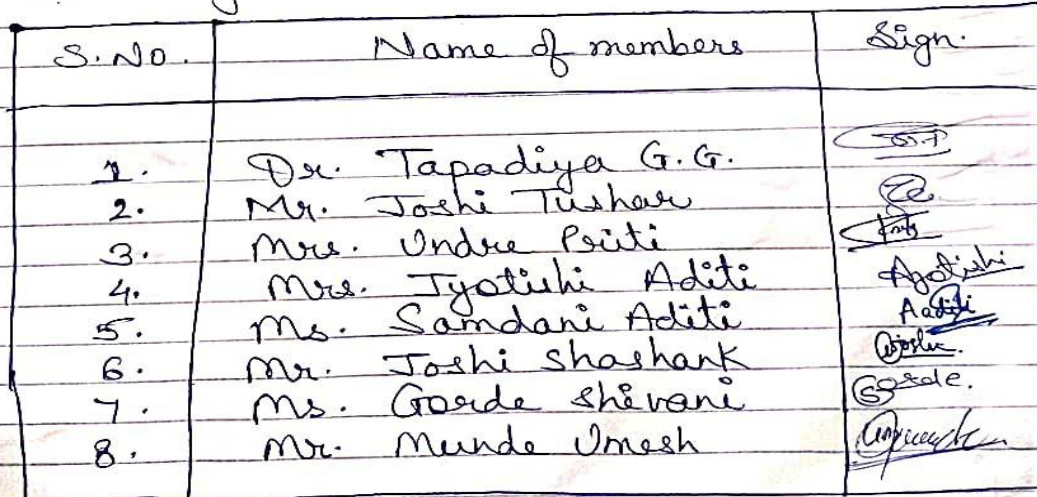 S.No. Name of members Sign.
1. Dr. Tapadiya G.G.
2. Mr. Joshi Tushar
3. Mrs. Undre Priti
4. Mrs. Jyotishi Aditi Ajotishi
5. Ms. Samdani Aditi Aaditi
6. Mr. Joshi Shashank
7. Ms. Gorde Shivani Gorde.
8. Mr. Munde Umesh